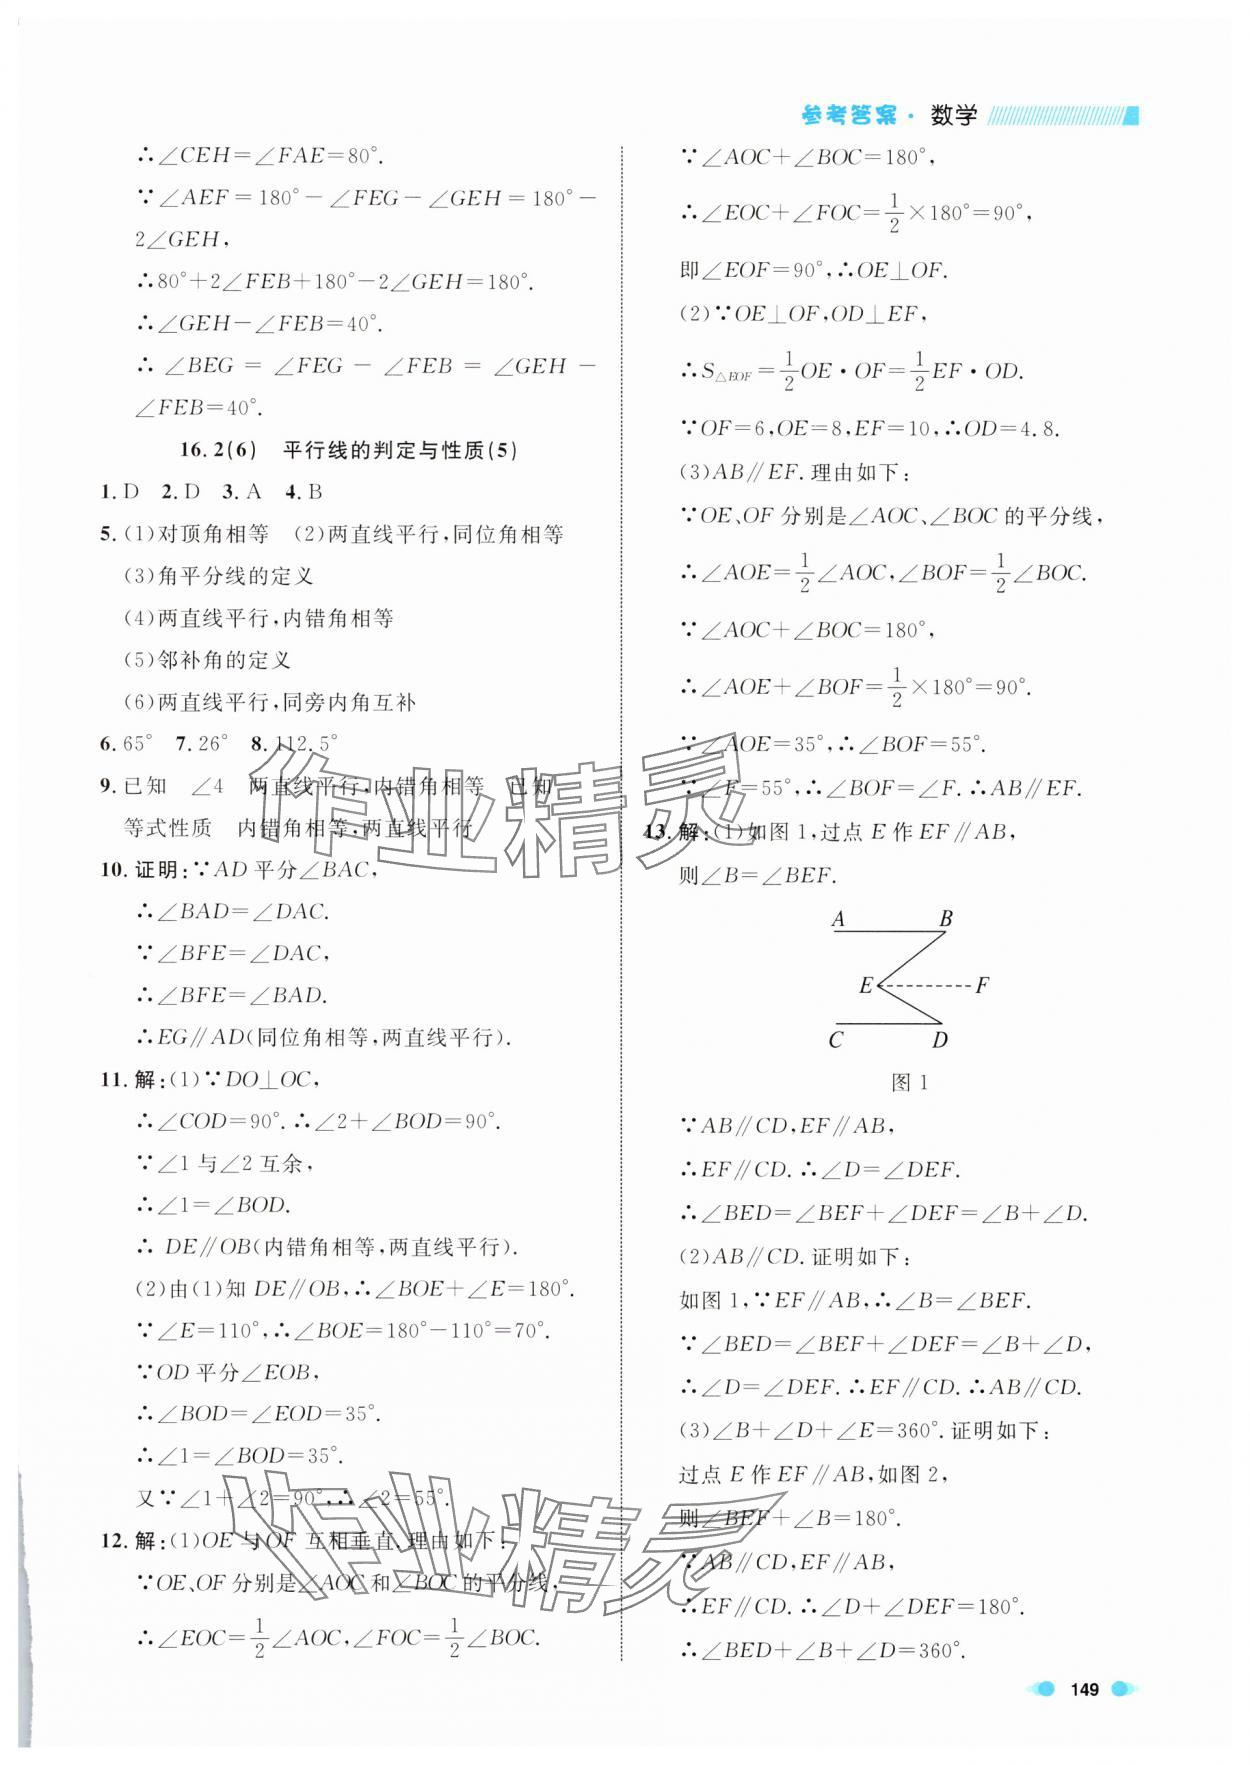 参考答案·数学
∴∠CEH=∠FAE=80°.
∵∠AEF=180°-∠FEG-∠GEH=180°-
2∠GEH,
∴80°+2∠FEB+180°-2∠GEH=180°.
∴∠GEH-∠FEB=40°.
∴∠BEG=∠FEG-∠FEB=∠GEH-
∠FEB=40°.
16.2(6) 平行线的判定与性质(5)
1.D 2.D 3.A 4.B
5.(1)对顶角相等 (2)两直线平行,同位角相等
(3)角平分线的定义
(4)两直线平行,内错角相等
(5)邻补角的定义
(6)两直线平行,同旁内角互补
6.65° 7.26° 8.112.5°
9.已知 ∠4 两直线平行,内错角相等 已知
等式性质 内错角相等,两直线平行
10.证明:∵AD平分∠BAC,
∴∠BAD=∠DAC.
∵∠BFE=∠DAC,
∴∠BFE=∠BAD.
∴EG∥AD(同位角相等,两直线平行).
11.解:(1)∵DO⊥OC,
∴∠COD=90°.∴∠2+∠BOD=90°.
∵∠1与∠2互余,
∴∠1=∠BOD.
∴DE∥OB(内错角相等,两直线平行).
(2)由(1)知DE∥OB,∴∠BOE+∠E=180°.
∵∠E=110°,∴∠BOE=180°-110°=70°.
∵OD平分∠EOB,
∴∠BOD=∠EOD=35°.
∴∠1=∠BOD=35°.
又∵∠1+∠2=90°,∴∠2=55°.
12.解:(1)OE与OF互相垂直.理由如下:
∵OE、OF分别是∠AOC和∠BOC的平分线,
∴∠EOC=1/2∠AOC,∠FOC=1/2∠BOC.
∵∠AOC+∠BOC=180°,
∴∠EOC+∠FOC=1/2×180°=90°,
即∠EOF=90°,∴OE⊥OF.
(2)∵OE⊥OF,OD⊥EF,
∴S△EOF=1/2OE·OF=1/2EF·OD.
∵OF=6,OE=8,EF=10,∴OD=4.8.
(3)AB∥EF.理由如下:
∵OE、OF分别是∠AOC、∠BOC的平分线,
∴∠AOE=1/2∠AOC,∠BOF=1/2∠BOC.
∵∠AOC+∠BOC=180°,
∴∠AOE+∠BOF=1/2×180°=90°.
∵∠AOE=35°,∴∠BOF=55°.
∵∠F=55°,∴∠BOF=∠F.∴AB∥EF.
13.解:(1)如图1,过点E作EF∥AB,
则∠B=∠BEF.
A B
E F
C D
图1
∵AB∥CD,EF∥AB,
∴EF∥CD.∴∠D=∠DEF.
∴∠BED=∠BEF+∠DEF=∠B+∠D.
(2)AB∥CD.证明如下:
如图1,∵EF∥AB,∴∠B=∠BEF.
∵∠BED=∠BEF+∠DEF=∠B+∠D,
∴∠D=∠DEF.∴EF∥CD.∴AB∥CD.
(3)∠B+∠D+∠E=360°.证明如下:
过点E作EF∥AB,如图2,
则∠BEF+∠B=180°.
∵AB∥CD,EF∥AB,
∴EF∥CD.∴∠D+∠DEF=180°.
∴∠BED+∠B+∠D=360°.
149
作业精灵
作业精灵